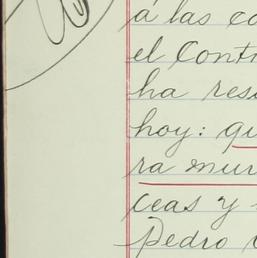 á las co
el Contr
ha resu
hoy: qu
ra mur
ceas y
Pedro